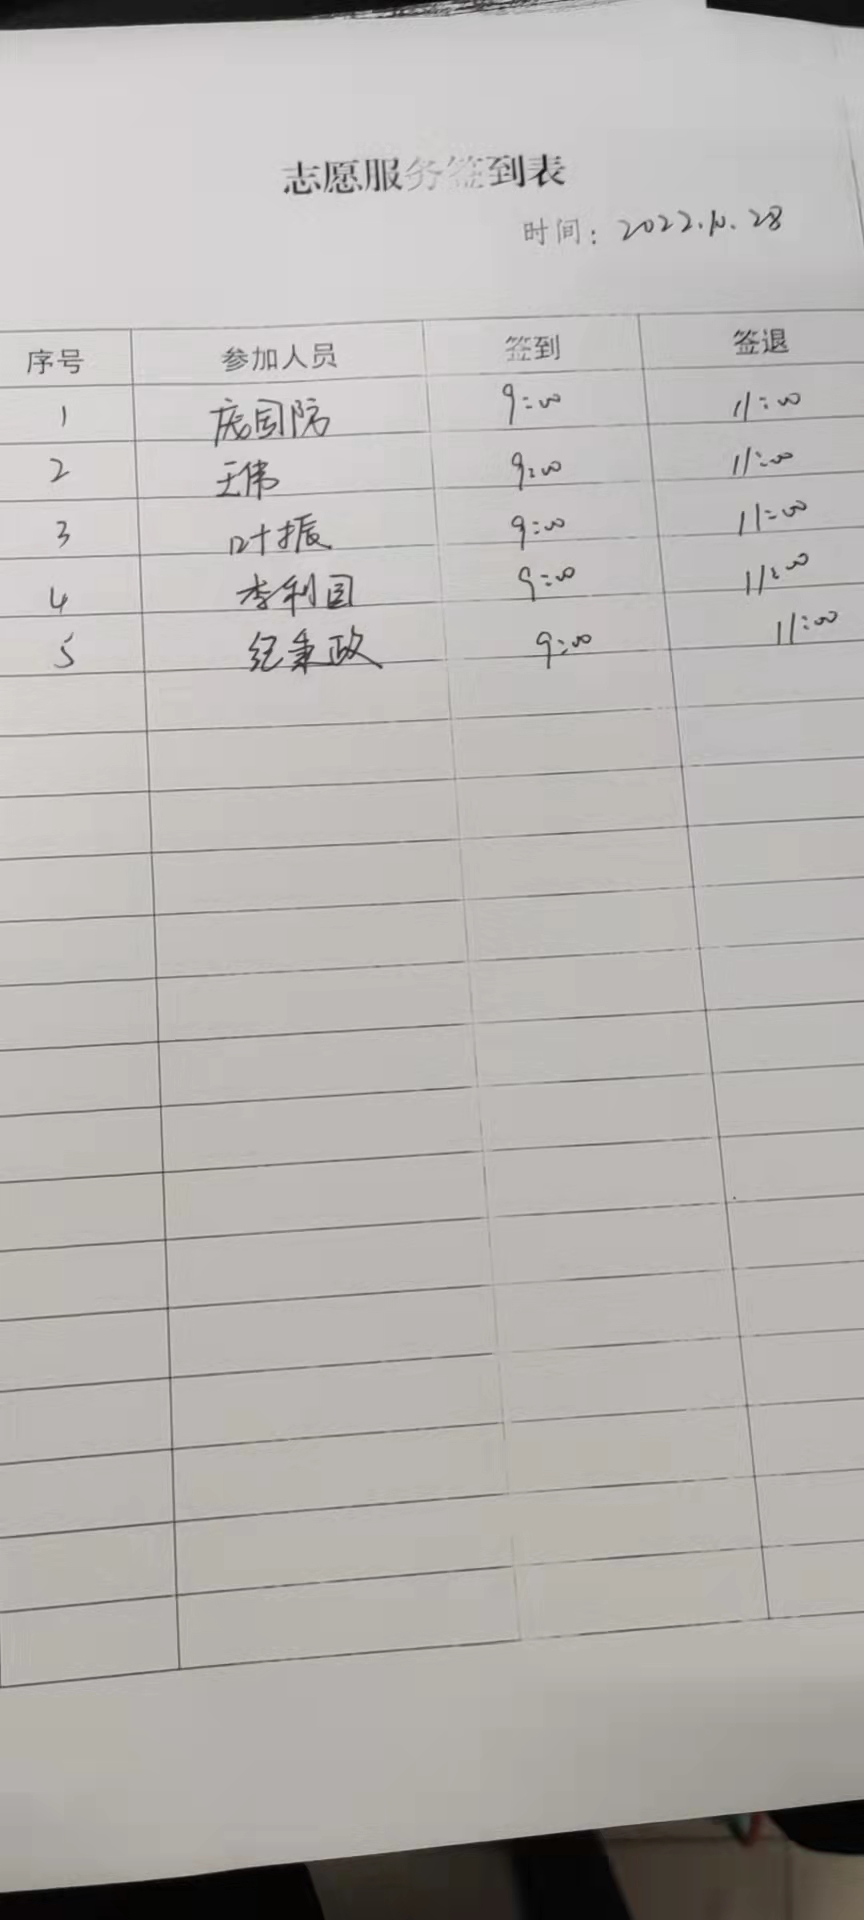 志愿服务签到表
时间：2022.10.28
序号 参加人员 签到 签退
1 庞国防 9:00 11:00
2 王伟 9:00 11:00
3 叶振 9:00 11:00
4 李利国 9:00 11:00
5 纪秉政 9:00 11:00